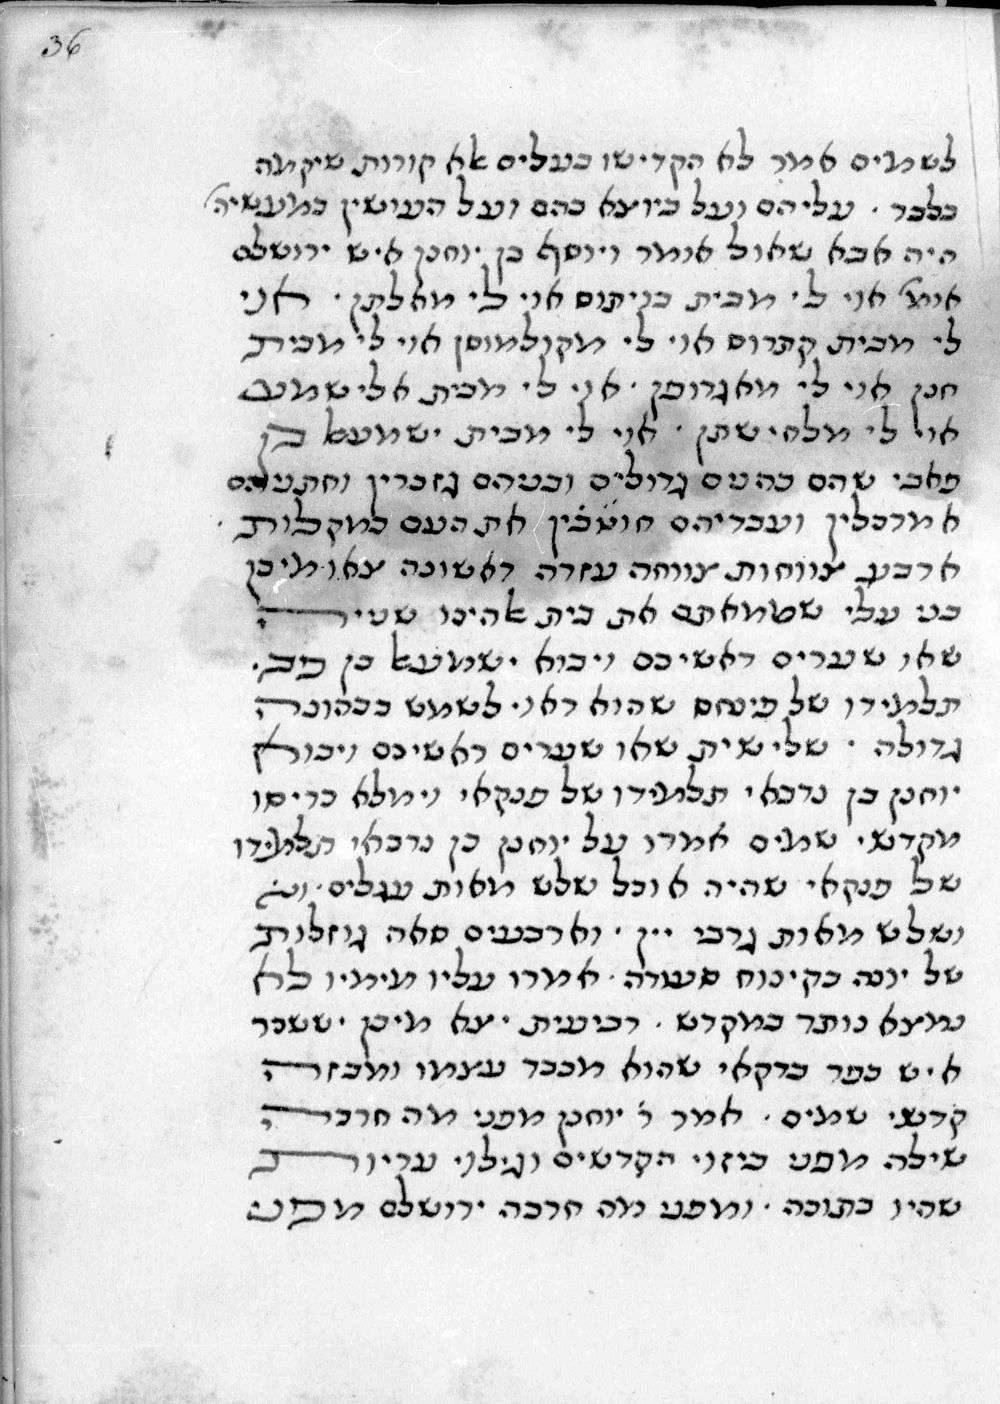 36
לשמים אמר לא הקדישו בעלים אלא קורות שיקמה
בלבד . עליהם ועל כיוצא בהם ועל העושין כמעשיה'
היה אבא שאול אומר ויוסף בן יוחנן איש ירושלם
אומ' אוי לי מבית בניתוס אוי לי מאלתן . אוי
לי מבית קתרוס אוי לי מקולמוסן אוי לי מבית
חנן אוי לי מאגרופן . אוי לי מבית אלישמע
אוי לי מלחישתן . אוי לי מבית ישמעאל בן
פאבי שהם כהנים גדולים ובניהם גזברין וחתניהם
אמרכלין ועבדיהם חובטין את העם במקלות .
ארבע צווחות צווחה עזרה ראשונה צאו מיכן
בני עלי שטמאתם את בית אלהינו שנייה
שאו שערים ראשיכם ויבוא ישמעאל בן פב .
תלמידו של פינחס שהוא ראוי לשמש בכהונה
גדולה . שלישית שאו שערים ראשיכם ויבוא
יוחנן בן נדבאי תלמידו של פנקאי וימלא כריסו
מקדשי שמים אמרו על יוחנן בן נדבאי תלמידו
של פנקאי שהיה אוכל שלש מאות עגלים .
ושלש מאות גרבי יין . וארבעים סאה גוזלות
של יונה בקינוח סעודה . אמרו עליו מימיו לא
נמצא נותר במקדש . רביעית יצא מיכן יששכר
איש כפר ברקאי שהוא מכבד עצמו ומבזה
קדשי שמים . אמר ר' יוחנן מפני מה חרבה
שילה מפני ביזוי הקדשים וגילוי עריות
שהיו בתוכה . ומפני מה חרבה ירושלם מפני